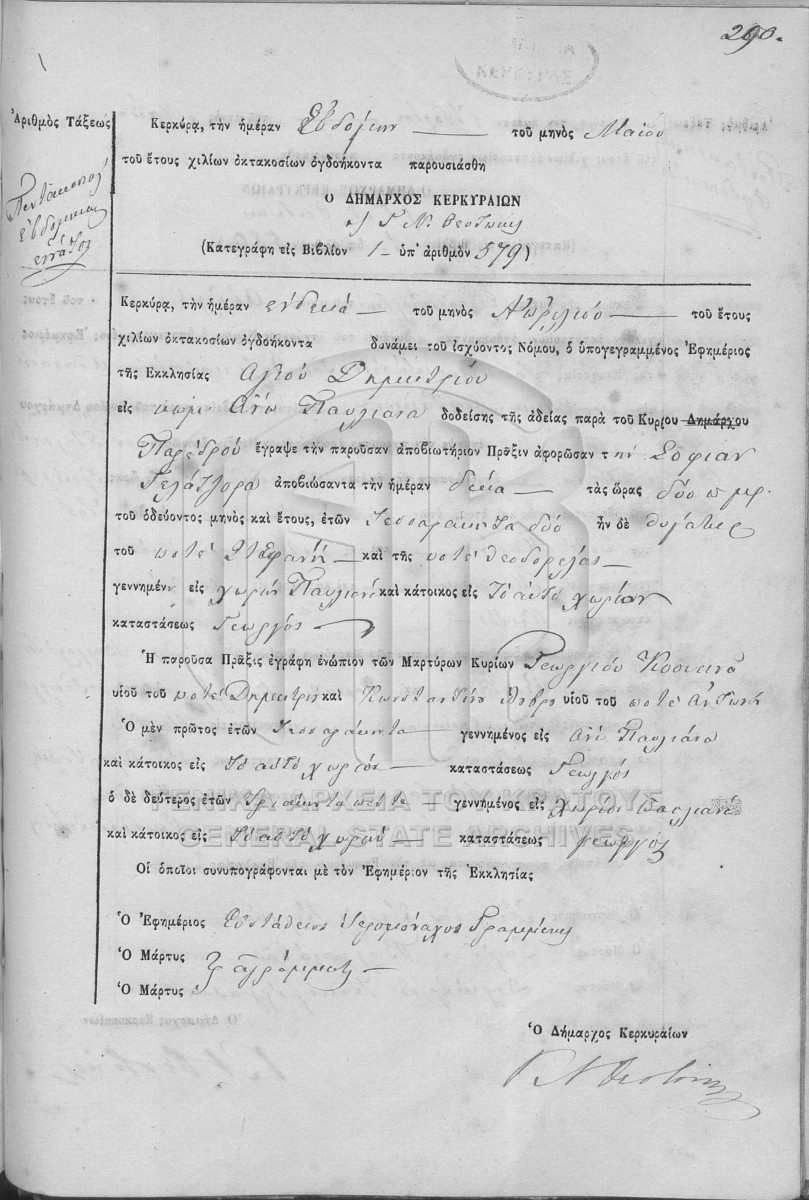 290.
Ἀριθμὸς Τάξεως
Πεντακόσιοι
ἑβδομήκοντα
ἐννέα
Κερκύρα, τὴν ἡμέραν Ἑβδόμην τοῦ μηνὸς Μαΐου
τοῦ ἔτους χιλίων ὀκτακοσίων ὀγδοήκοντα παρουσιάσθη
Ὁ ΔΗΜΑΡΧΟΣ ΚΕΡΚΥΡΑΙΩΝ
Γ Ν. Θεοτόκης
(Κατεγράφη εἰς Βιβλίον 1 ὑπ' ἀριθμὸν 579)
Κερκύρα, τὴν ἡμέραν ἑνδεκά τοῦ μηνὸς Ἀπριλίου τοῦ ἔτους
χιλίων ὀκτακοσίων ὀγδοήκοντα δυνάμει τοῦ ἰσχύοντος Νόμου, ὁ ὑπογεγραμμένος Ἐφημέριος
τῆς Ἐκκλησίας Ἁγίου Δημητρίου
εἰς χωρί Ἄνω Παυλιάνα δοθείσης τῆς ἀδείας παρὰ τοῦ Κυρίου Δημάρχου
Παρέδρου ἔγραψε τὴν παροῦσαν ἀποβιωτήριον Πρᾶξιν ἀφορῶσαν τὴν Σοφίαν
ἀποβιώσαντα τὴν ἡμέραν δέκα τὰς ὥρας δύο π μρ.
τοῦ ὁδεύοντος μηνὸς καὶ ἔτους, ἐτῶν τεσσαράκοντα δύο ἦν δὲ θυγάτηρ
τοῦ ποτέ Στεφανῆ καὶ τῆς ποτὲ Θεοδορέλας
γεννημένη εἰς χωρίον Παυλιάνα καὶ κάτοικος εἰς τὸ αὐτὸ χωρίον
καταστάσεως Γεωργός
Ἡ παροῦσα Πρᾶξις ἐγράφη ἐνώπιον τῶν Μαρτύρων Κυρίων Γεωργίου Κοσκινᾶ
υἱοῦ τοῦ ποτέ Δημητρίου καὶ Κωνσταντίνου υἱοῦ τοῦ ποτέ Ἀντώνη
Ὁ μὲν πρῶτος ἐτῶν τεσσαράκοντα γεννημένος εἰς Ἄνω Παυλιάνα
καὶ κάτοικος εἰς τὸ αὐτὸ χωρίον καταστάσεως Γεωργός
ὁ δὲ δεύτερος ἐτῶν τριάκοντα πέντε γεννημένος εἰς χωρίον παυλιάνα
καὶ κάτοικος εἰς τὸ αὐτὸ χωρίον καταστάσεως γεωργός
Οἱ ὁποῖοι συνυπογράφονται μὲ τὸν Ἐφημέριον τῆς Ἐκκλησίας
Ὁ Ἐφημέριος Εὐστάθειος ἱερομόναχος Γραμμένος
Ὁ Μάρτυς
ἀγράμματοι
Ὁ Μάρτυς
Ὁ Δήμαρχος Κερκυραίων
Γ Ν Θεοτόκης
ΓΕΝΙΚΑ ΑΡΧΕΙΑ ΤΟΥ ΚΡΑΤΟΥΣ
GENERAL STATE ARCHIVES